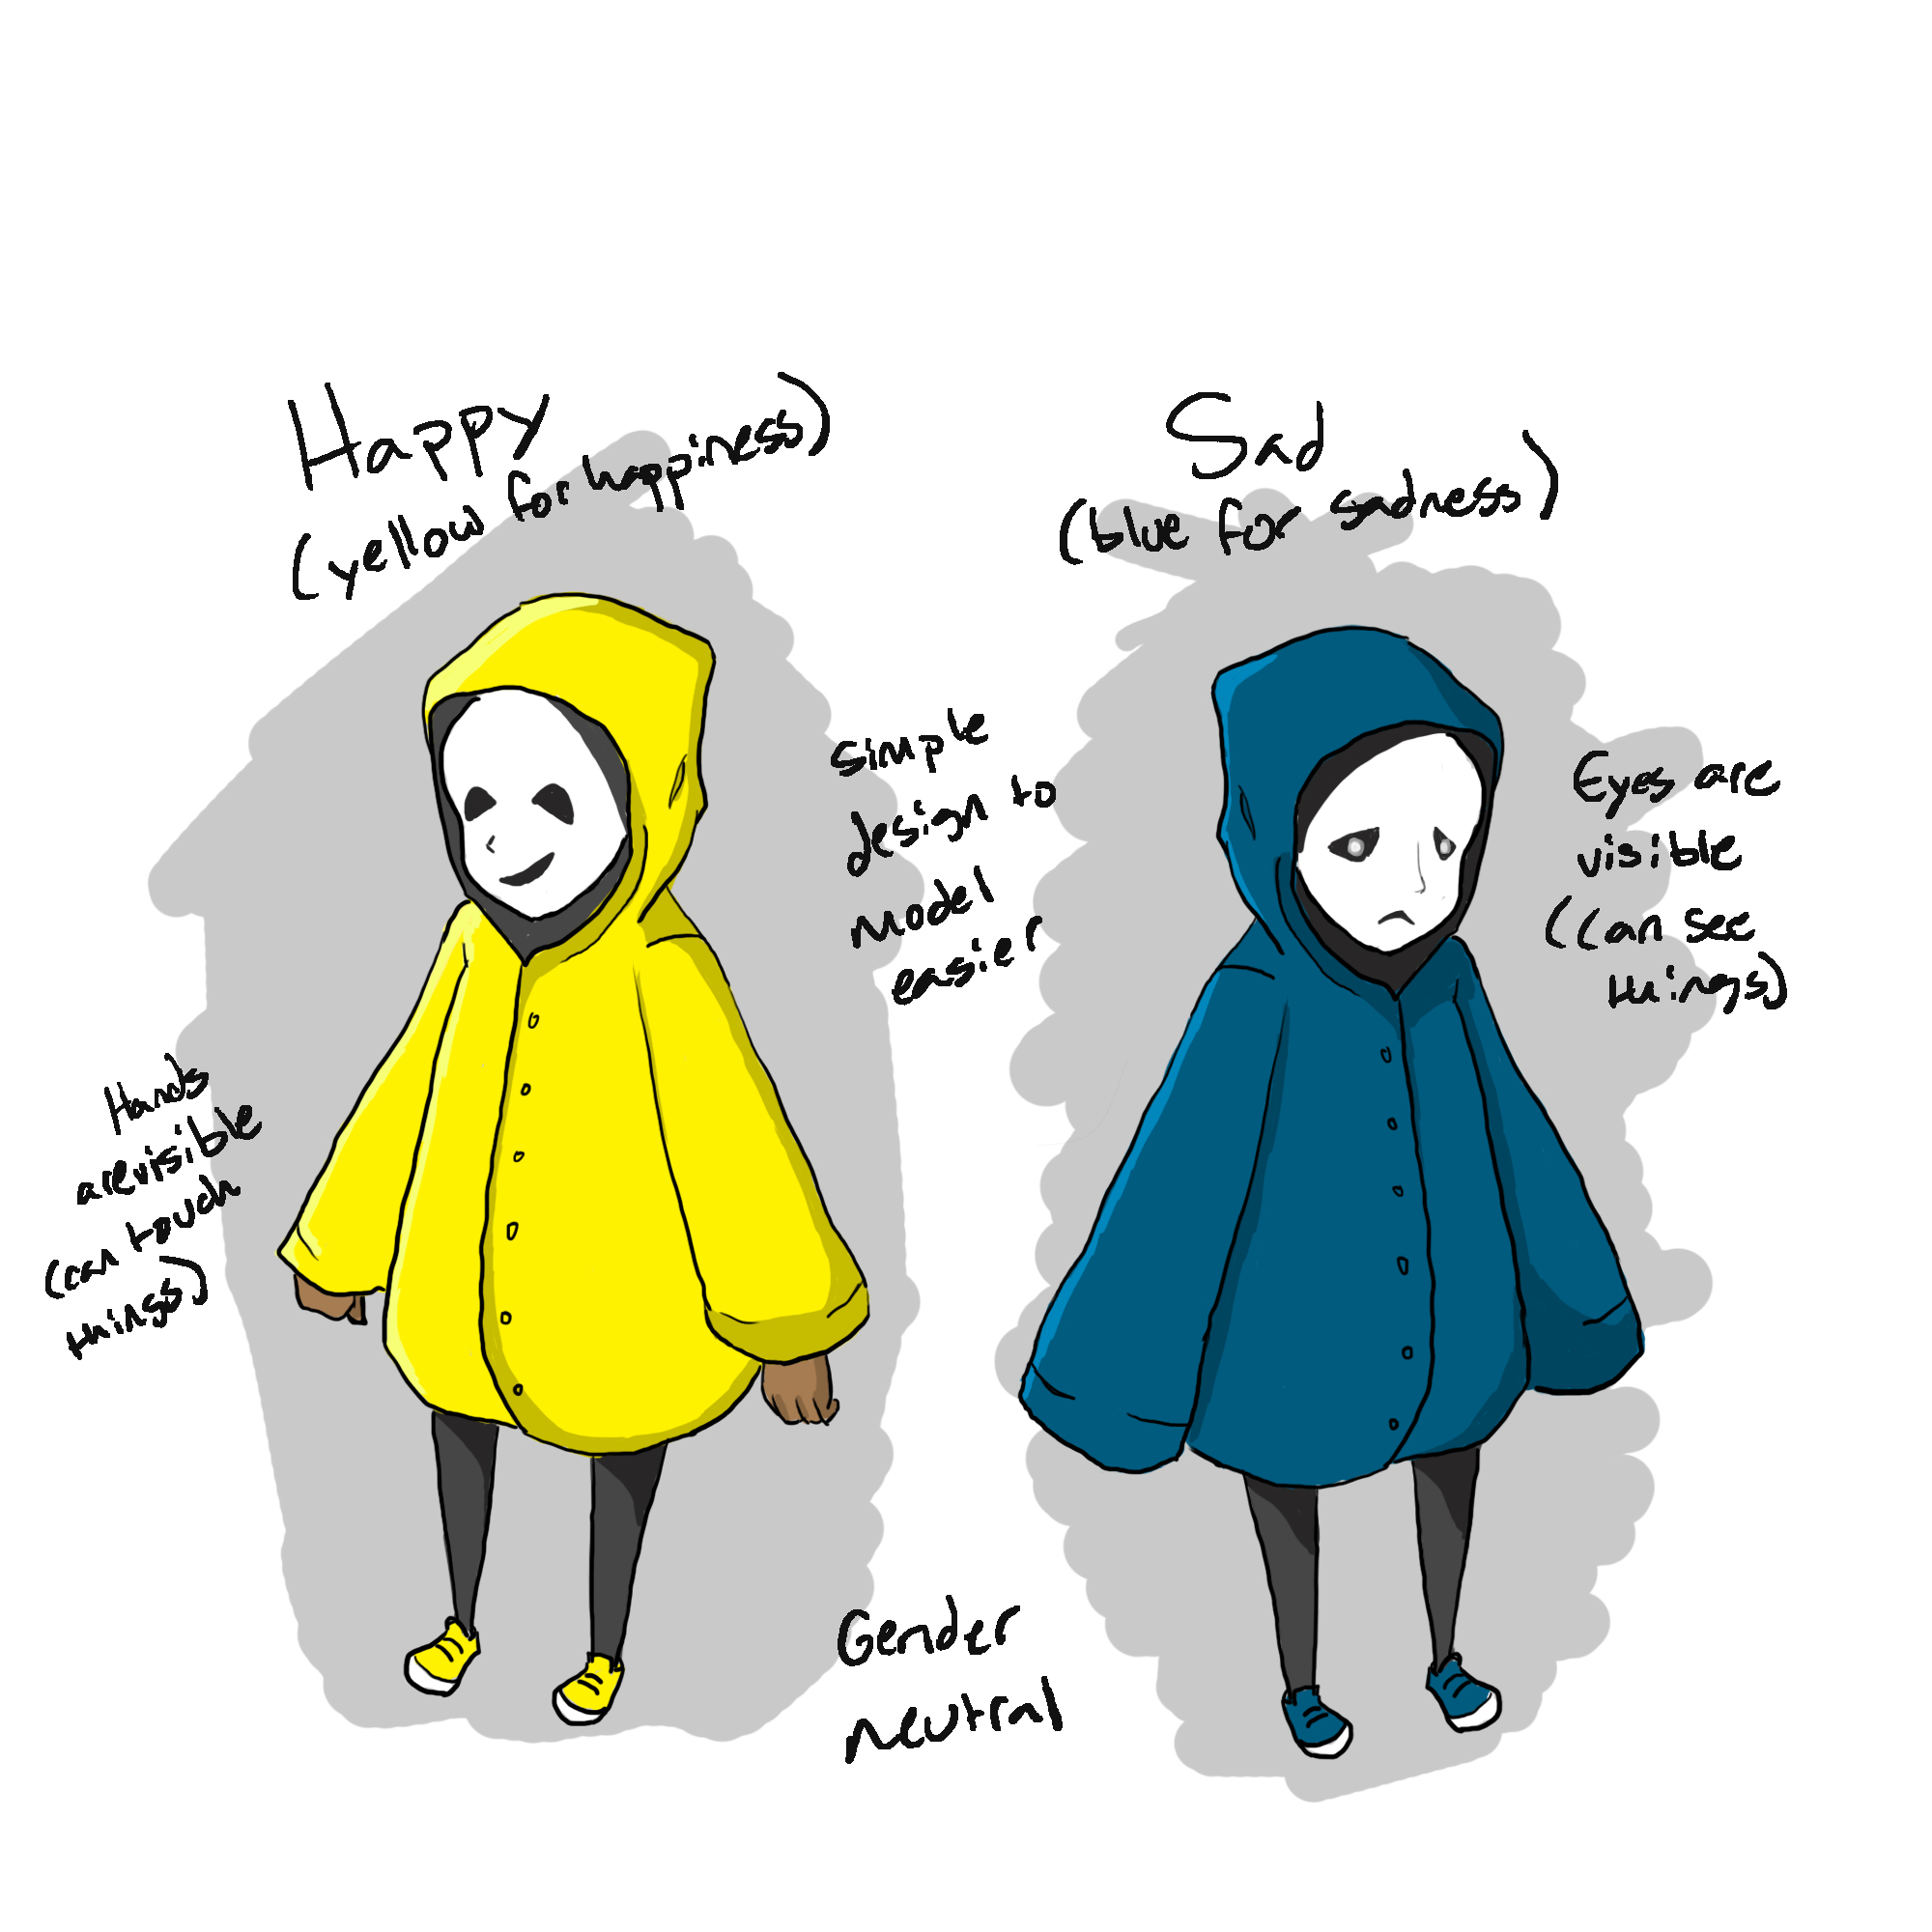 Happy
(yellow for happiness)
Sad
(blue for sadness)
simple
design to
model
easier
Eyes are
visible
(can see
things)
Hands
are visible
(can touch
things)
Gender
neutral